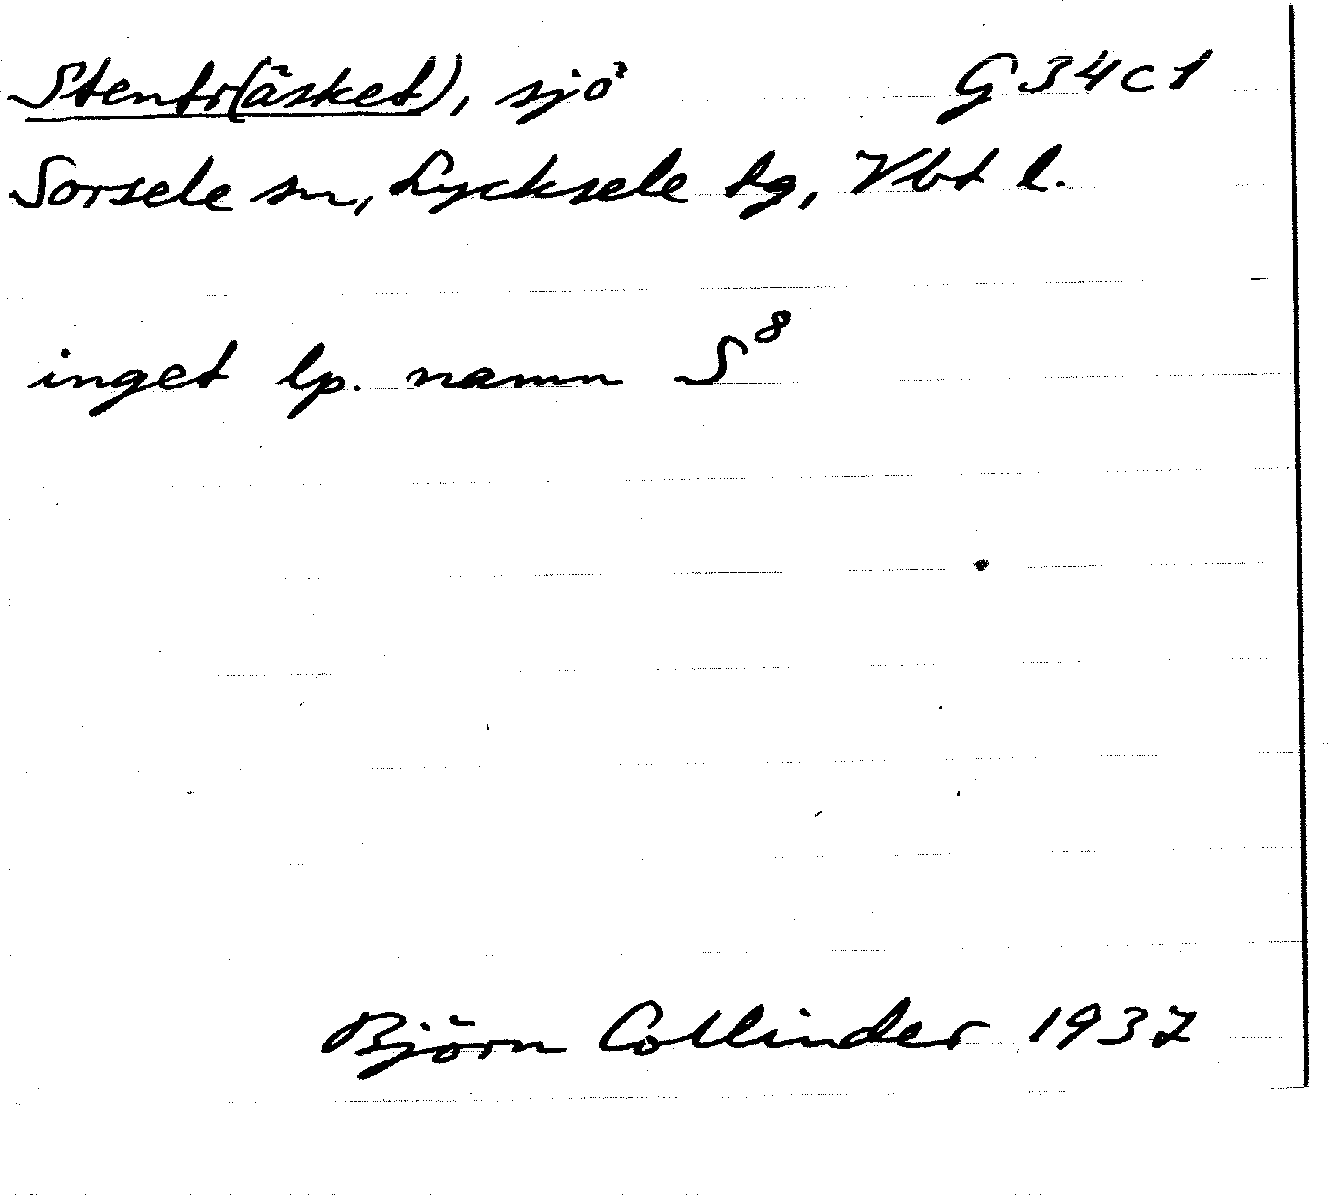 Stentr(äsket), sjö G 34 c 1
Sorsele sn, Lycksele lg, Vbt l.
inget lp. namn S⁸
Björn Collinder 1937